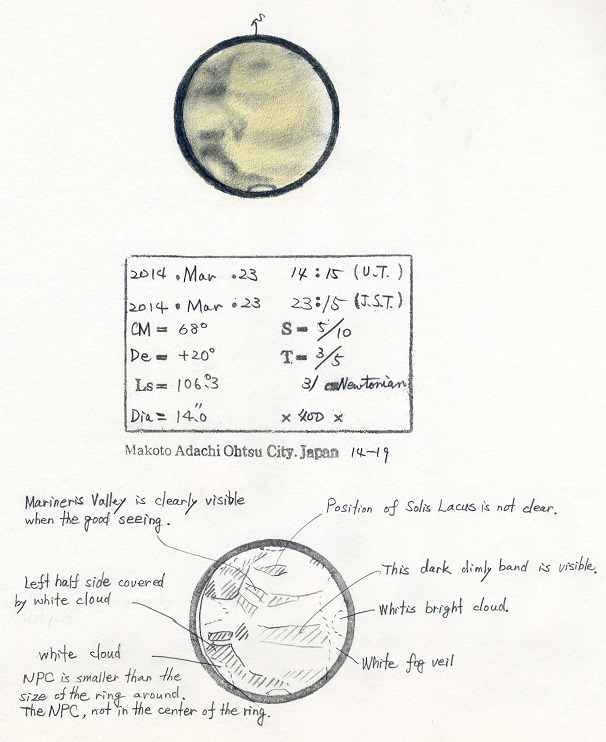 S
2014 . Mar . 23 14 : 15 (U.T.)
2014 . Mar . 23 23 : 15 (J.S.T.)
CM = 68° S = 5/10
De = +20° T = 3/5
Ls = 106.°3 31 cm Newtonian
Dia = 14."0 × 400 ×
Makoto Adachi Ohtsu City. Japan 14-19
Marineris Valley is clearly visible
when the good seeing.
Position of Solis Lacus is not clear.
This dark dimly band is visible.
Left half side covered
by white cloud
Whitis bright cloud.
white cloud
White fog veil
NPC is smaller than the
size of the ring around.
The NPC, not in the center of the ring.